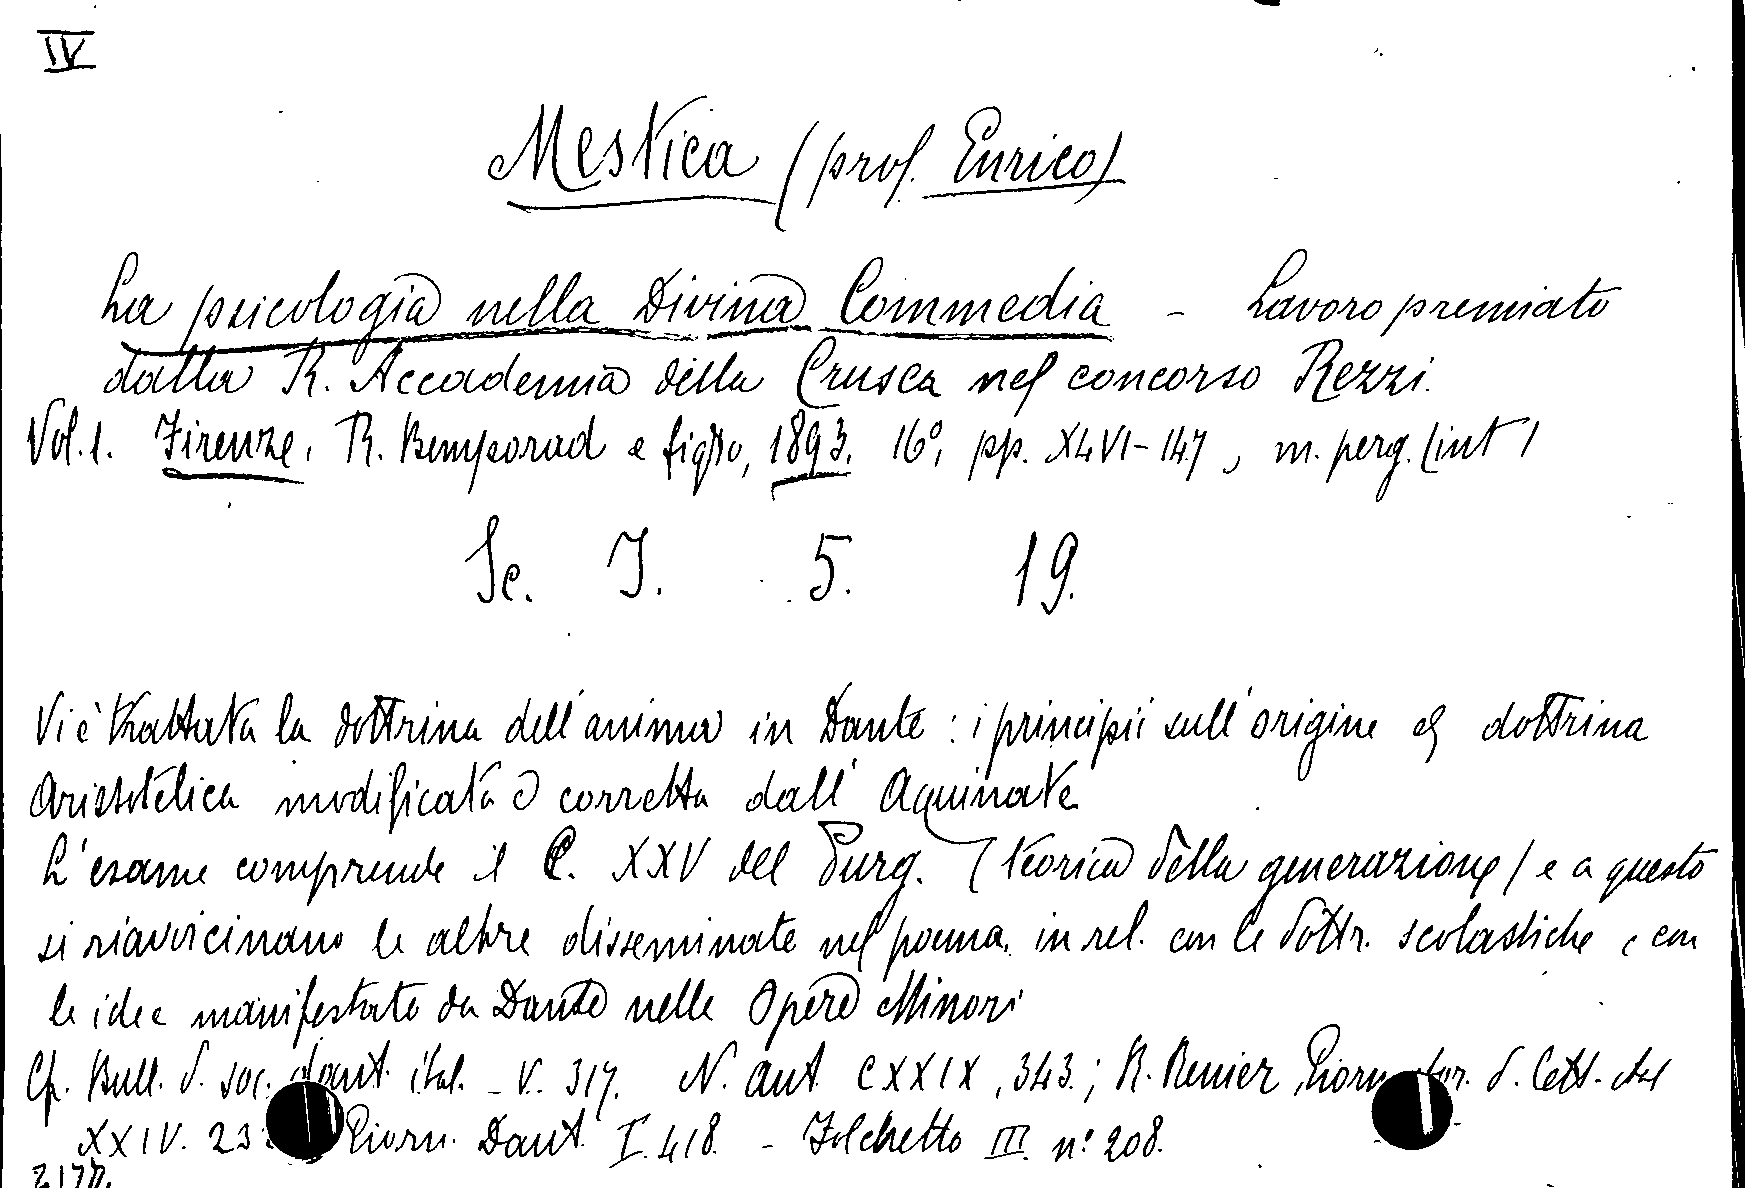 IV
Mestica (prof. Enrico)
La psicologia nella Divina Commedia - Lavoro premiato
dalla R. Accademia della Crusca nel concorso Rezzi.
Vol. 1. Firenze, R. Bemporad e figlio, 1893. 16°, pp. XLVI-147, m. perg. (int)
Sc. I. 5. 19.
Vi è trattata la dottrina dell'anima in Dante: i principii sull'origine e dottrina
Aristotelica modificata e corretta dall'Aquinate
L'esame comprende il C. XXV del Purg. (teorica della generazione) e a questo
si riavvicinano le altre disseminate nel poema in rel. con le dottr. scolastiche e con
le idee manifestate da Dante nelle Opere Minori
Cf. Bull. d. soc. dant. ital. - V. 317. N. ant. CXXIX, 343.; R. Renier Giorn. stor. d. Lett. ital
XXIV. 23 Giorn. Dant. I. 418. - Folchetto III. n° 208.